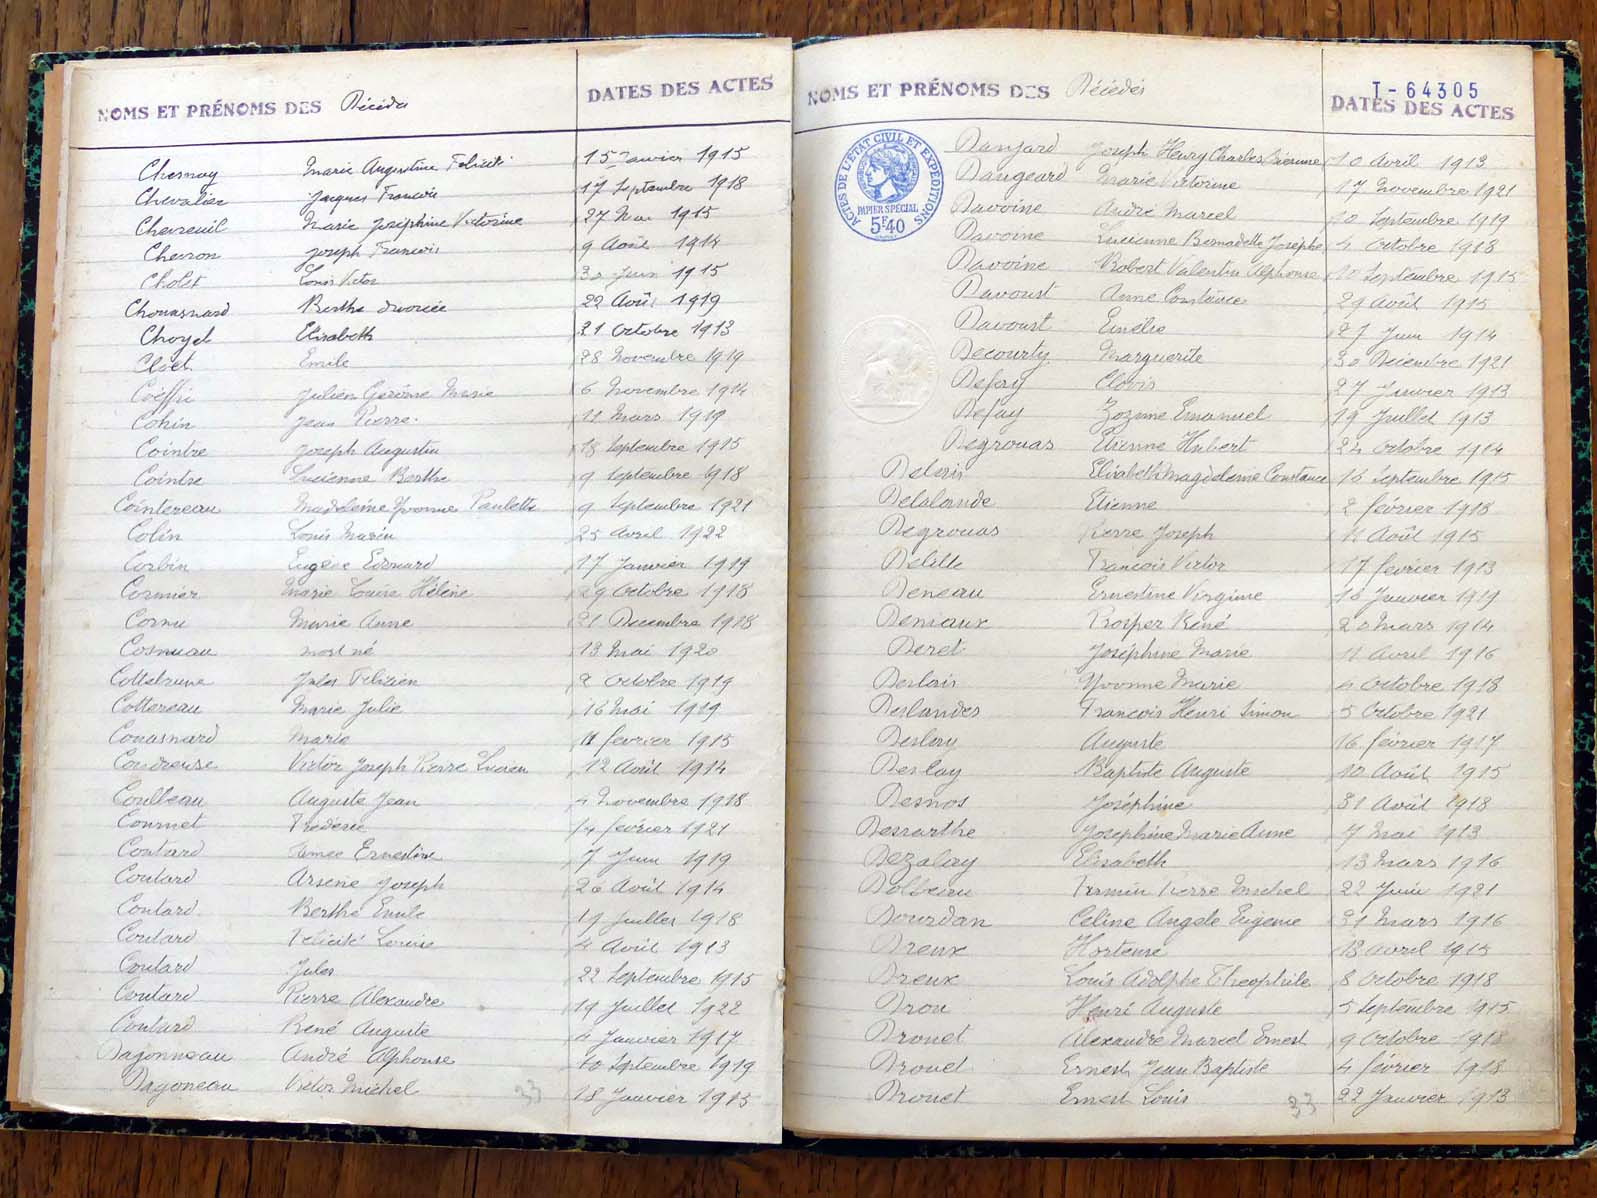 NOMS ET PRÉNOMS DES Décédés DATES DES ACTES
Chesnay Marie Augustine Félicité 15 Janvier 1915
Chevalier Jacques François 17 Septembre 1918
Chevreuil Marie Joséphine Victorine 27 Mai 1915
Chevron Joseph François 9 Août 1914
Cholet Louis Victor 30 Juin 1915
Chouasnard Berthe divorcée 22 Août 1919
Choyel Elisabeth 21 Octobre 1913
Cloet Emile 28 Novembre 1919
Coëffi Julien Gérôme Marie 6 Novembre 1914
Cohin Jean Pierre 11 Mars 1919
Cointre Joseph Augustin 18 Septembre 1915
Cointre Lucienne Berthe 9 Septembre 1918
Cointereau Madeleine Yvonne Paulette 9 Septembre 1921
Colin Louis Marin 25 Avril 1922
Corbin Eugène Edouard 17 Janvier 1919
Cormier Marie Louise Hélène 29 Octobre 1918
Cornu Marie Anne 21 Décembre 1918
Cosnuau mort né 13 Mai 1920
Cottebrune Jules Félicien 2 Octobre 1919
Cottereau Marie Julie 16 Mai 1919
Couasnard Marie 11 février 1915
Coudreuse Victor Joseph Pierre Lucien 12 Avril 1914
Coulbeau Auguste Jean 4 Novembre 1918
Cournet Frédéric 14 février 1921
Coutard Aimée Ernestine 7 Juin 1919
Coutard Arsène Joseph 20 Août 1914
Coutard Berthe Emile 19 Juillet 1918
Coutard Félicité Louise 4 Avril 1913
Coutard Jules 22 Septembre 1915
Coutard Pierre Alexandre 19 Juillet 1922
Coutard René Auguste 4 Janvier 1917
Dagonneau André Alphonse 10 Septembre 1919
Dagoneau Victor Michel 18 Janvier 1915
33
NOMS ET PRÉNOMS DES Décédés T-64305 DATES DES ACTES
ACTES DE L'ÉTAT CIVIL ET EXPÉDITIONS
PAPIER SPÉCIAL
5F40
Danjard Joseph Henry Charles Etienne 10 Avril 1913
Dangeard Marie Victorine 17 Novembre 1921
Davoine André Marcel 10 Septembre 1919
Davoine Lucienne Bernadette Josèphe 4 Octobre 1918
Davoine Robert Valentin Alphonse 10 Septembre 1915
Davoust Anne Constance 29 Août 1915
Davoust Emélie 27 Juin 1914
Decourty Marguerite 30 Décembre 1921
Defay Clovis 27 Janvier 1913
Defay Zozime Emanuel 19 Juillet 1913
Degrouas Etienne Hubert 24 Octobre 1914
Delais Elisabeth Magdeleine Constance 16 Septembre 1915
Delalande Etienne 2 février 1918
Degrouas Pierre Joseph 11 Août 1915
Delille François Victor 17 février 1913
Deneau Ernestine Virginie 16 Janvier 1919
Deniaux Prosper René 20 Mars 1914
Deret Joséphine Marie 11 Avril 1916
Deslais Yvonne Marie 4 Octobre 1918
Deslandes François Henri Simon 5 Octobre 1921
Deslay Auguste 16 février 1917
Deslay Baptiste Auguste 10 Août 1915
Desnos Joséphine 31 Août 1918
Dessarthe Joséphine Marie Anne 7 Mai 1913
Dezalay Elisabeth 13 Mars 1916
Dolbeau Firmin Pierre Michel 22 Juin 1921
Dourdan Céline Angèle Eugénie 31 Mars 1916
Dreux Hortense 18 Avril 1915
Dreux Louis Adolphe Théophile 8 Octobre 1918
Drou Henri Auguste 5 Septembre 1915
Drouet Alexandre Marcel Ernest 9 Octobre 1918
Drouet Ernest Jean Baptiste 4 février 1918
Drouet Ernest Louis 22 Janvier 1913
33